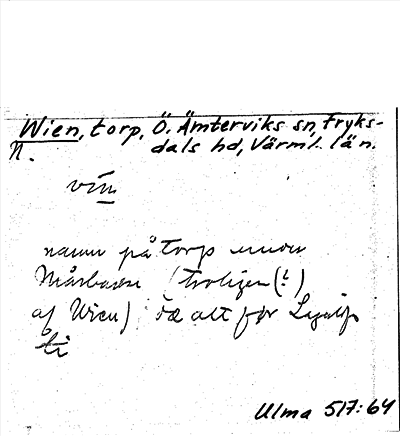 Wien, torp, Ö. Ämterviks sn, Fryks-
n. dals hd, Värml. län.
vin
namn på torp under
Mårbacka (troligen (?)
af Wien)
ti
Ulma 517:64